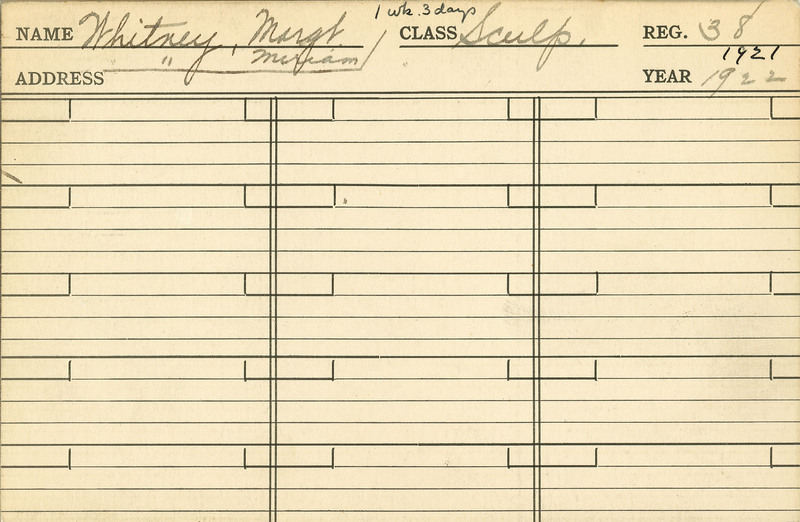 1 wk. 3 days
NAME Whitney, Margt. CLASS Sculp. REG. 38
" Miriam 1921
ADDRESS YEAR 1922